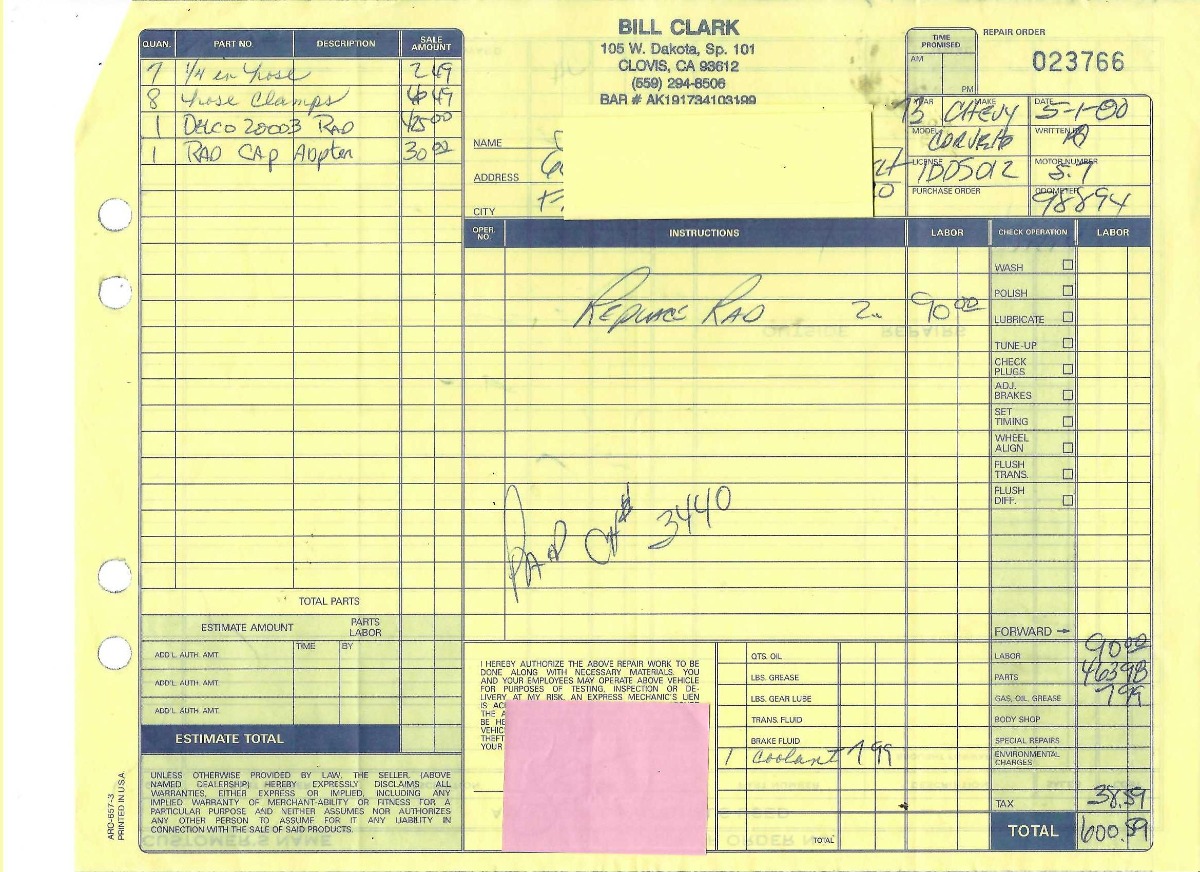 BILL CLARK
105 W. Dakota, Sp. 101
CLOVIS, CA 93612
(559) 294-8506
BAR # AK191734103199
REPAIR ORDER
023766
TIME PROMISED
AM
PM
QUAN. PART NO. DESCRIPTION SALE AMOUNT
7 1/4 in hose 2 49
8 hose Clamps 6 49
1 DELCO 20003 RAD 425 00
1 RAD CAP ADPTER 30 00
NAME
ADDRESS
CITY
YEAR MAKE DATE
73 CHEVY 5-1-00
MODEL WRITTEN BY
CORVETTE
LICENSE MOTOR NUMBER
1DDS012 5.7
PURCHASE ORDER ODOMETER
98894
OPER. NO. INSTRUCTIONS LABOR CHECK OPERATION LABOR
WASH
POLISH
REPLACE RAD 2. 90 00
LUBRICATE
TUNE-UP
CHECK PLUGS
ADJ. BRAKES
SET TIMING
WHEEL ALIGN
FLUSH TRANS.
FLUSH DIFF.
PAID CK# 3440
TOTAL PARTS
ESTIMATE AMOUNT PARTS LABOR
ADD'L. AUTH. AMT. TIME BY
ADD'L. AUTH. AMT.
ADD'L. AUTH. AMT.
ESTIMATE TOTAL
UNLESS OTHERWISE PROVIDED BY LAW, THE SELLER, (ABOVE
NAMED DEALERSHIP) HEREBY EXPRESSLY DISCLAIMS ALL
WARRANTIES, EITHER EXPRESS OR IMPLIED, INCLUDING ANY
IMPLIED WARRANTY OF MERCHANT-ABILITY OR FITNESS FOR A
PARTICULAR PURPOSE AND NEITHER ASSUMES NOR AUTHORIZES
ANY OTHER PERSON TO ASSUME FOR IT ANY LIABILITY IN
CONNECTION WITH THE SALE OF SAID PRODUCTS.
ARO-657-3
PRINTED IN U.S.A.
I HEREBY AUTHORIZE THE ABOVE REPAIR WORK TO BE
DONE ALONG WITH NECESSARY MATERIALS. YOU
AND YOUR EMPLOYEES MAY OPERATE ABOVE VEHICLE
FOR PURPOSES OF TESTING, INSPECTION OR DE-
LIVERY AT MY RISK. AN EXPRESS MECHANIC'S LIEN
IS
THE
BE
THEFT
YOUR
QTS. OIL
LBS. GREASE
LBS. GEAR LUBE
TRANS. FLUID
BRAKE FLUID
1 Coolant 7 99
TOTAL
FORWARD
LABOR 90 00
PARTS 463 98
GAS, OIL, GREASE 7 99
BODY SHOP
SPECIAL REPAIRS
ENVIRONMENTAL CHARGES
TAX 38.59
TOTAL 600.59